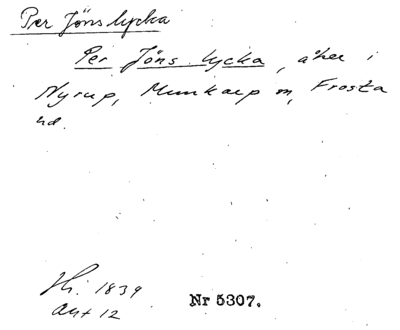 Per Jöns lycka
Per Jöns lycka, åker i
Nyrup, Munkarp sn, Frosta
hd.
Hi. 1839
Akt 12
Nr 5307.